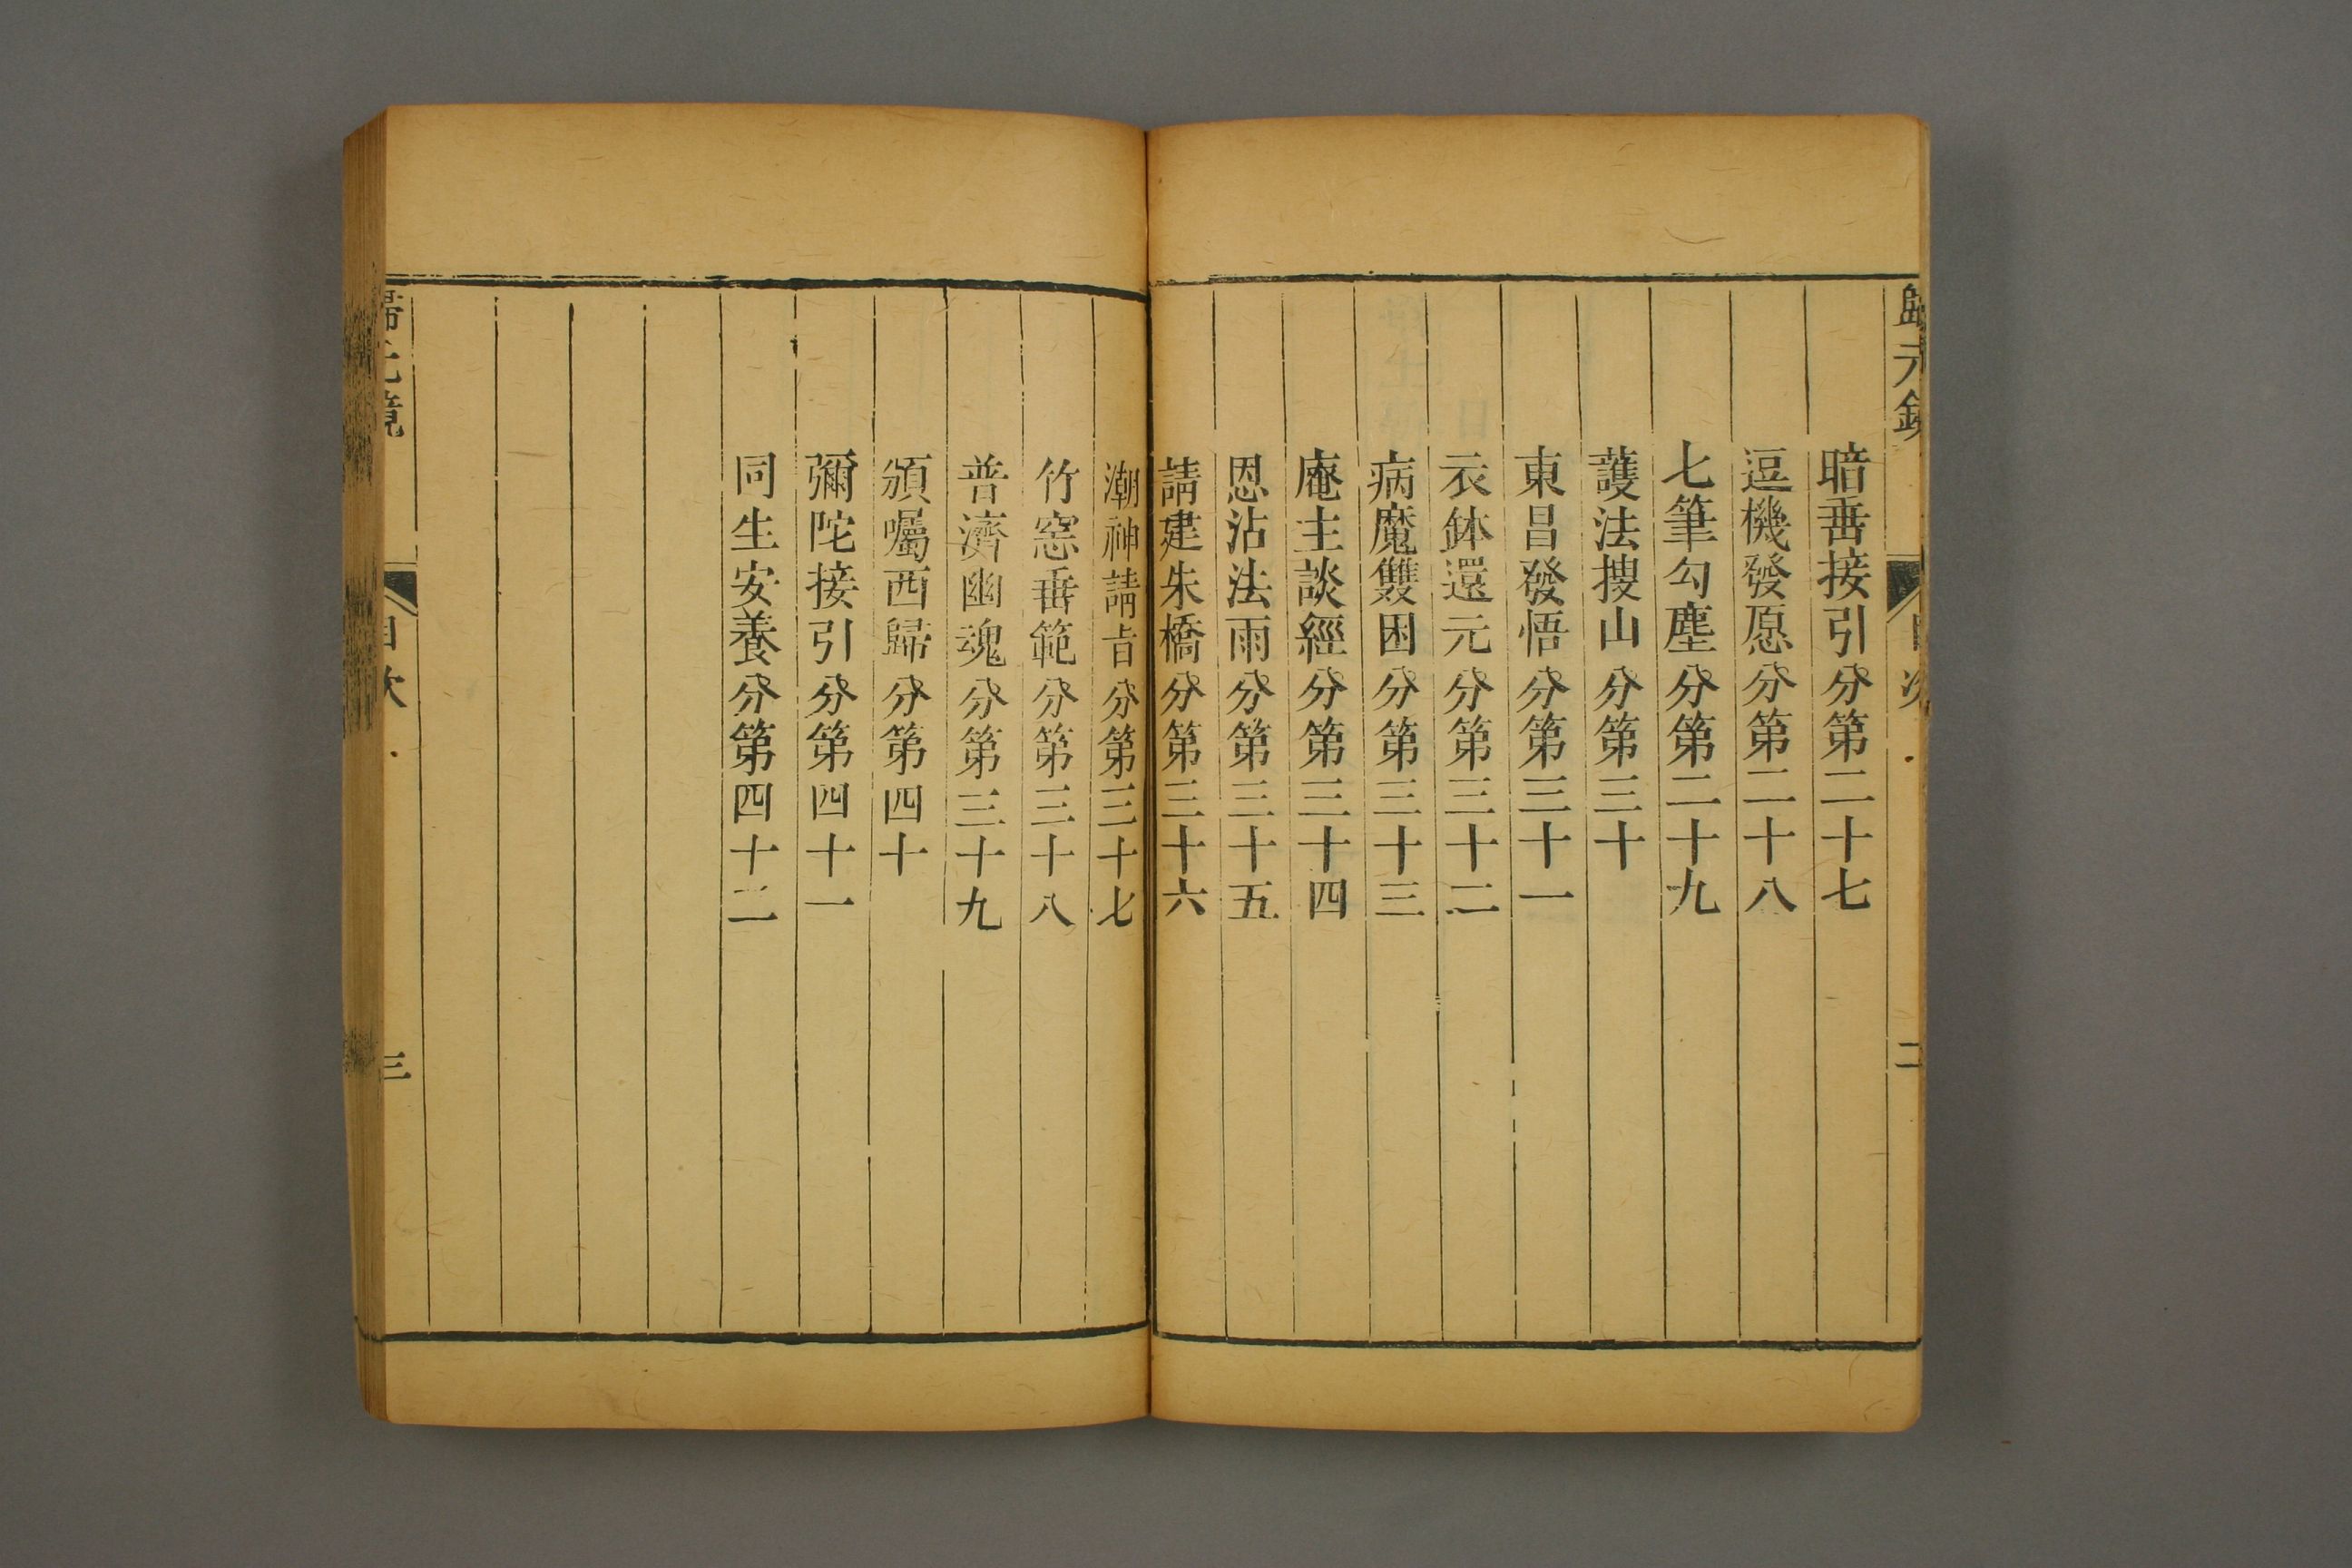 歸元鏡
目次
二
暗垂接引分第二十七
逗機發愿分第二十八
七筆勾塵分第二十九
護法搜山分第三十
東昌發悟分第三十一
衣鉢還元分第三十二
病魔雙困分第三十三
庵主談經分第三十四
恩沾法雨分第三十五
請建朱橋分第三十六
潮神請旨分第三十七
竹窓垂範分第三十八
普濟幽魂分第三十九
頒囑西歸分第四十
彌陀接引分第四十一
同生安養分第四十二
歸元鏡
目次
三